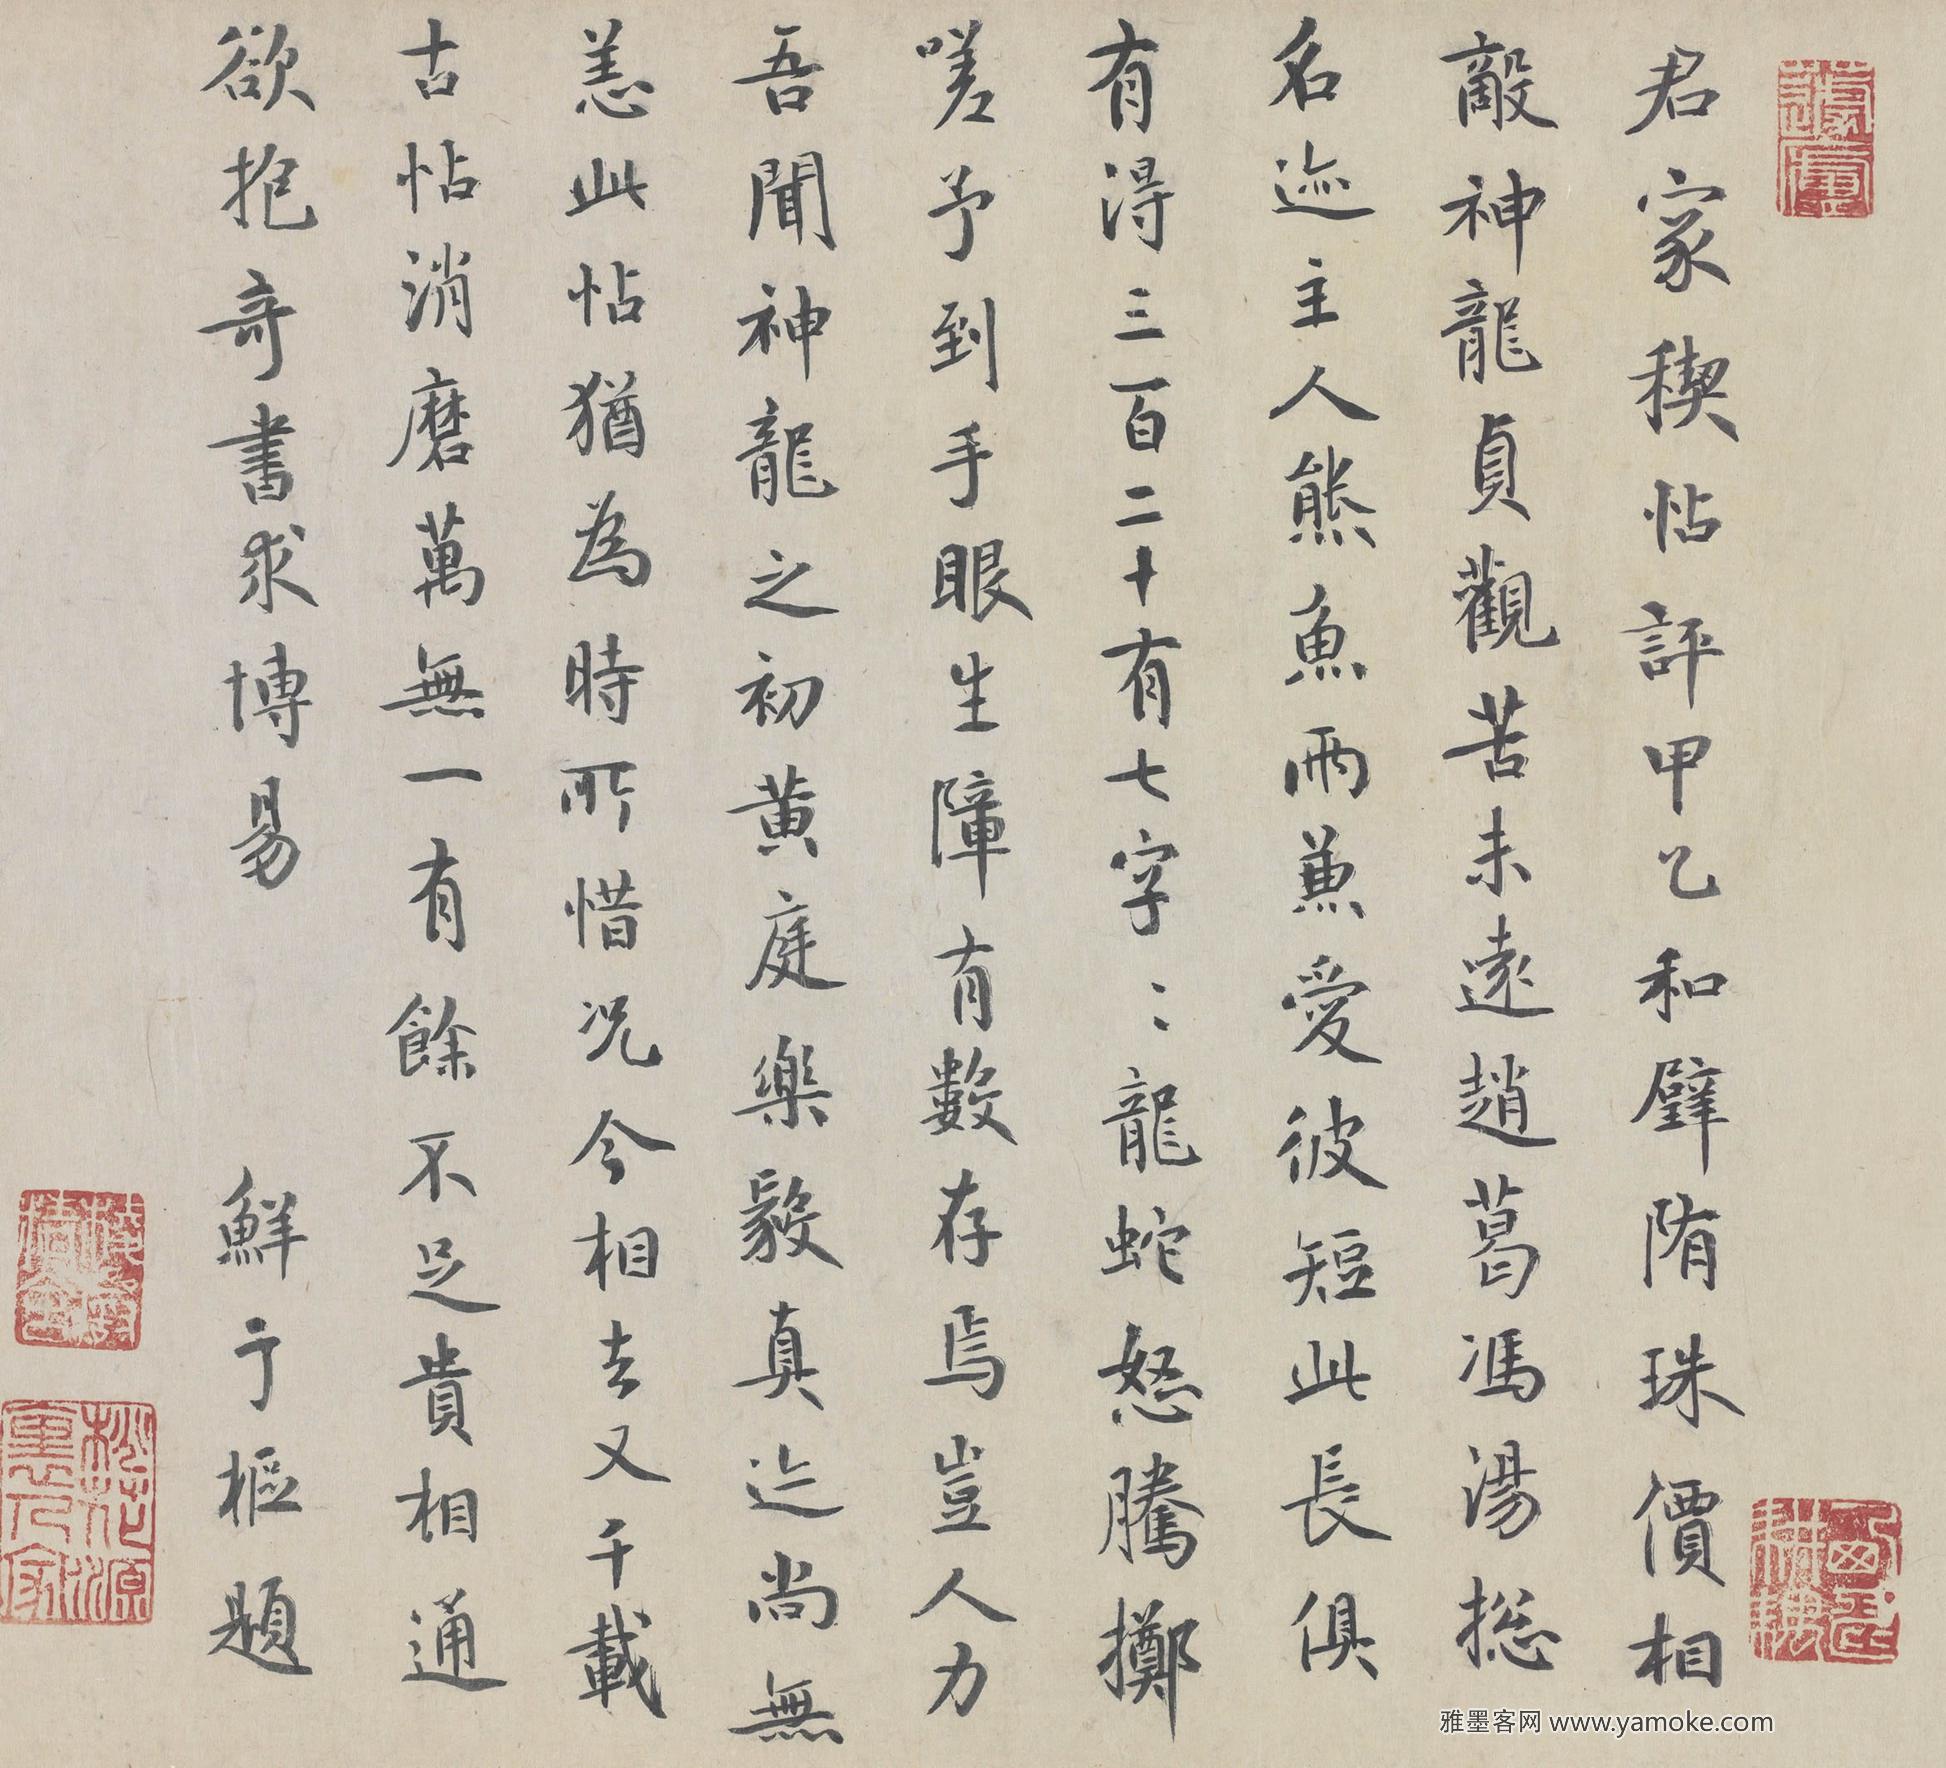 君家稧帖評甲乙和璧隋珠價相
敵神龍貞觀苦未遠趙葛馮湯揔
名迹主人熊魚兩兼愛彼短此長俱
有得三百二十有七字〻龍蛇怒騰擲
嗟予到手眼生障有數存焉豈人力
吾聞神龍之初黃庭樂毅真迹尚無
恙此帖猶為時所惜況今相去又千載
古帖消磨萬無一有餘不足貴相通
欲抱奇書求博易 鮮于樞題
桃花源里人家
雅墨客网 www.yamoke.com